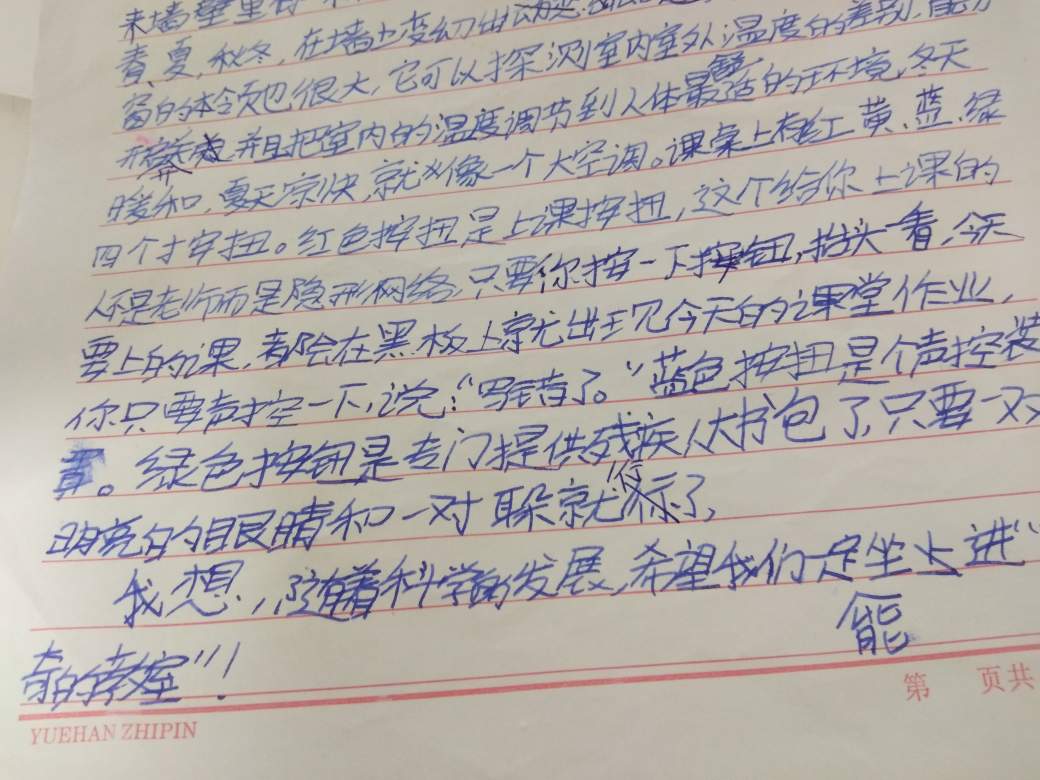 来墙壁里有
春、夏、秋、冬,在墙上变幻出
窗的本领也很大,它可以探测室内室外温度的差别,能力
并且把室内的温度调节到人体最合适的环境,冬天
暖和,夏天凉快,就像一个大空调。课桌上有红、黄、蓝、绿
四个按扭。红色按扭是上课按扭,这个给你上课的
人不是老师而是隐形网络,只要你按一下按钮,抬头一看,今天
要上的课,都会在黑板上就出现今天的课堂作业,
你只要声控一下,说:“写错了。”蓝色按扭是个声控装
置。绿色按钮是专门提供残疾人大书包了,只要一对
明亮的眼睛和一对朵就行了,
我想,随着科学的发展,希望我们一定能坐上进“
奇的教室”!
YUEHAN ZHIPIN
第 页共